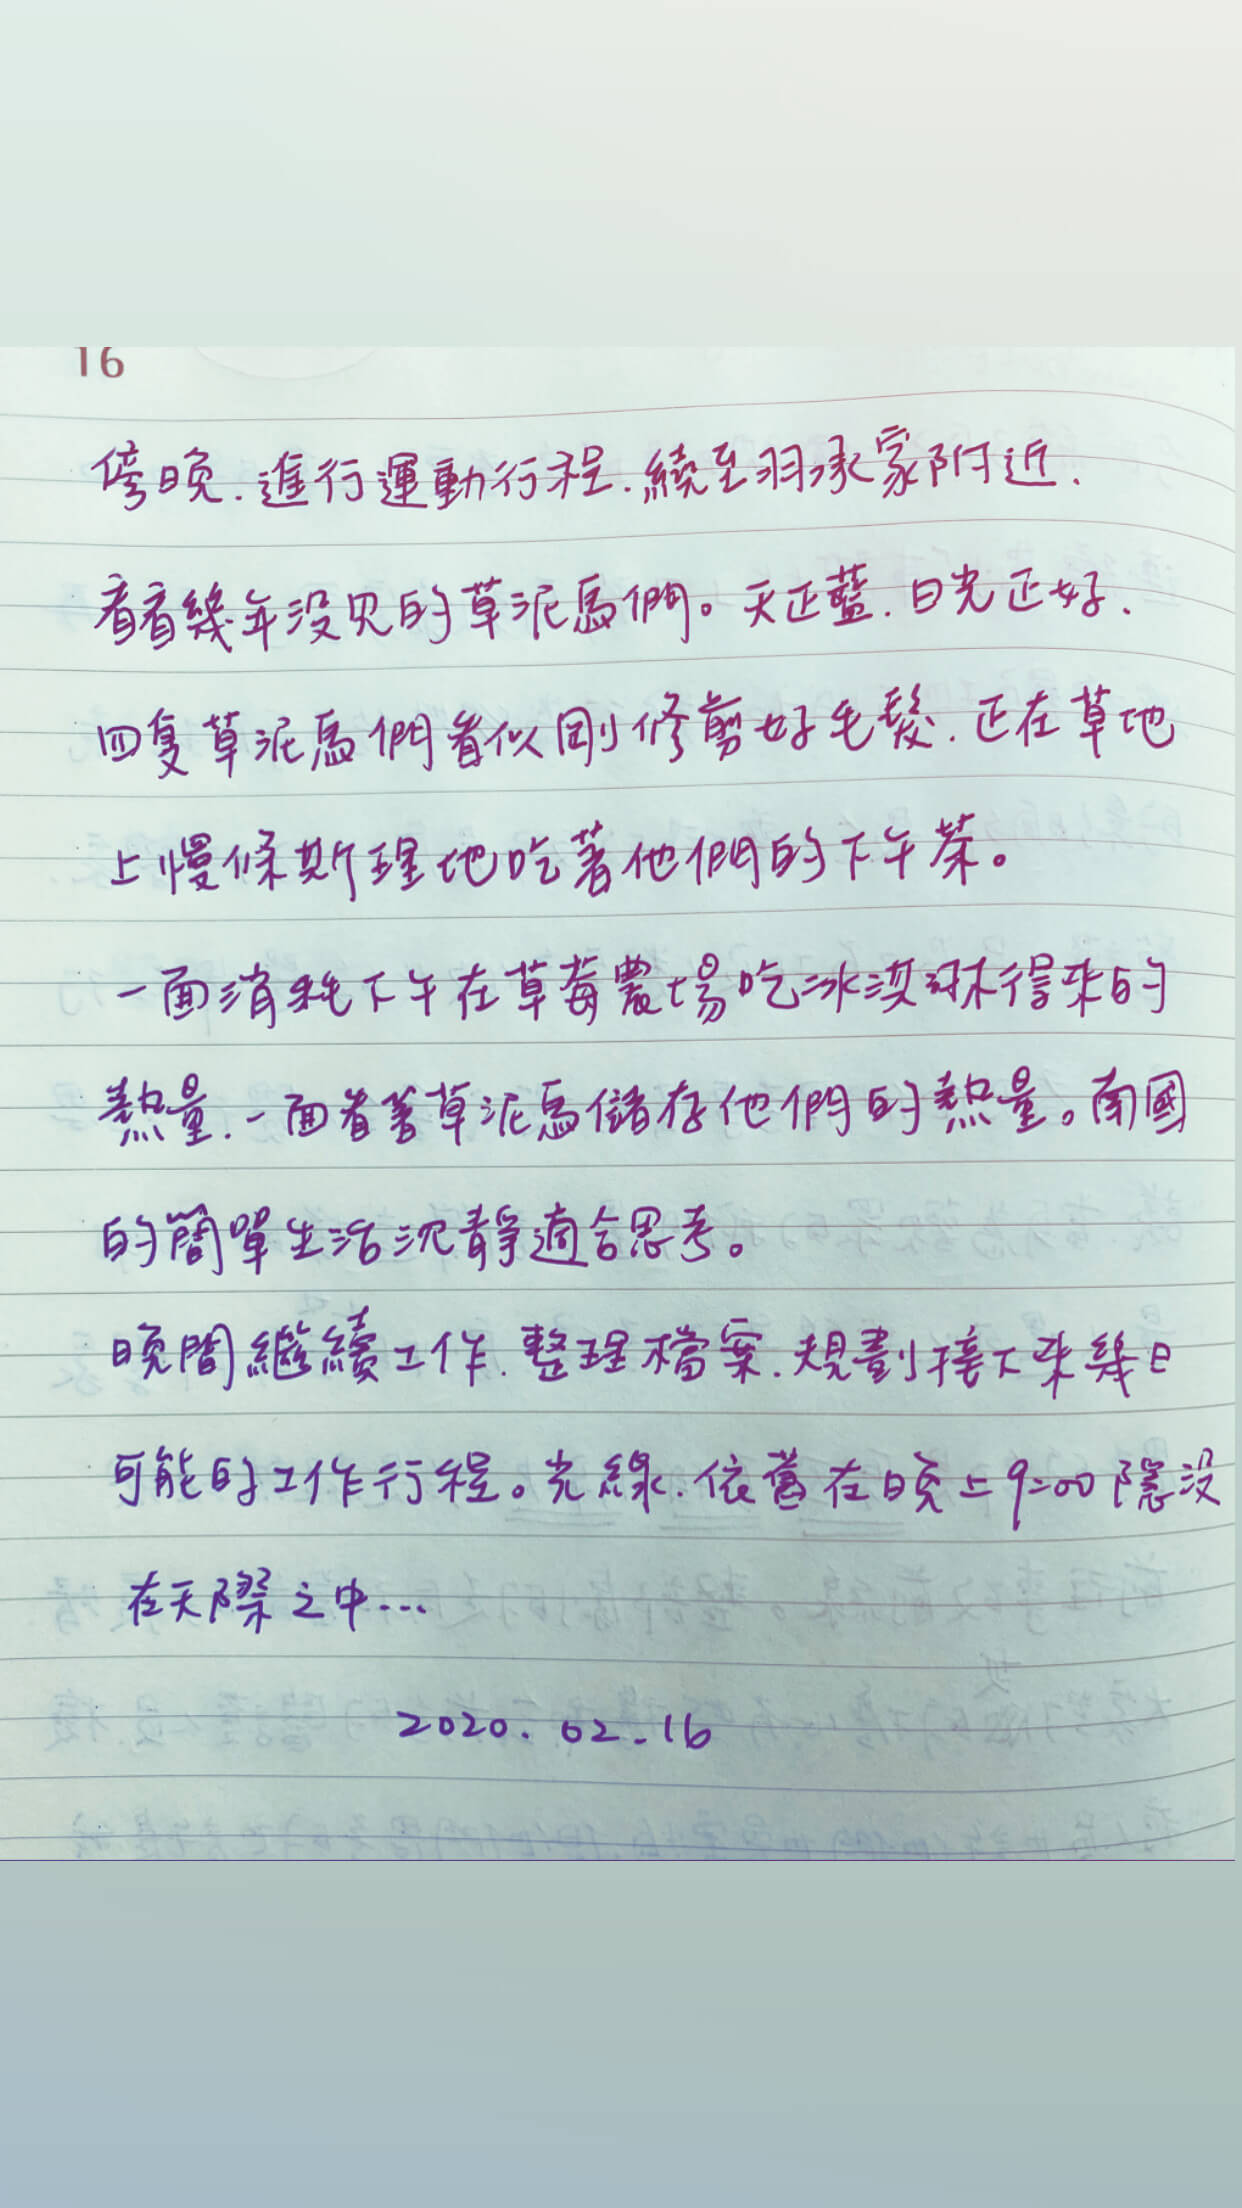 16
傍晚.進行運動行程.繞至羽承家附近.
看看幾年沒見的草泥馬們。天正藍.日光正好.
四隻草泥馬們看似剛修剪好毛髮.正在草地
上慢條斯理地吃著他們的下午茶。
一面消耗下午在草莓農場吃冰淇淋得來的
熱量.一面看著草泥馬儲存他們的熱量。南國
的簡單生活沈靜適合思考。
晚間繼續工作.整理檔案.規劃接下來幾日
可能的工作行程。光線.依舊在晚上9:00隱沒
在天際之中...
2020.02.16